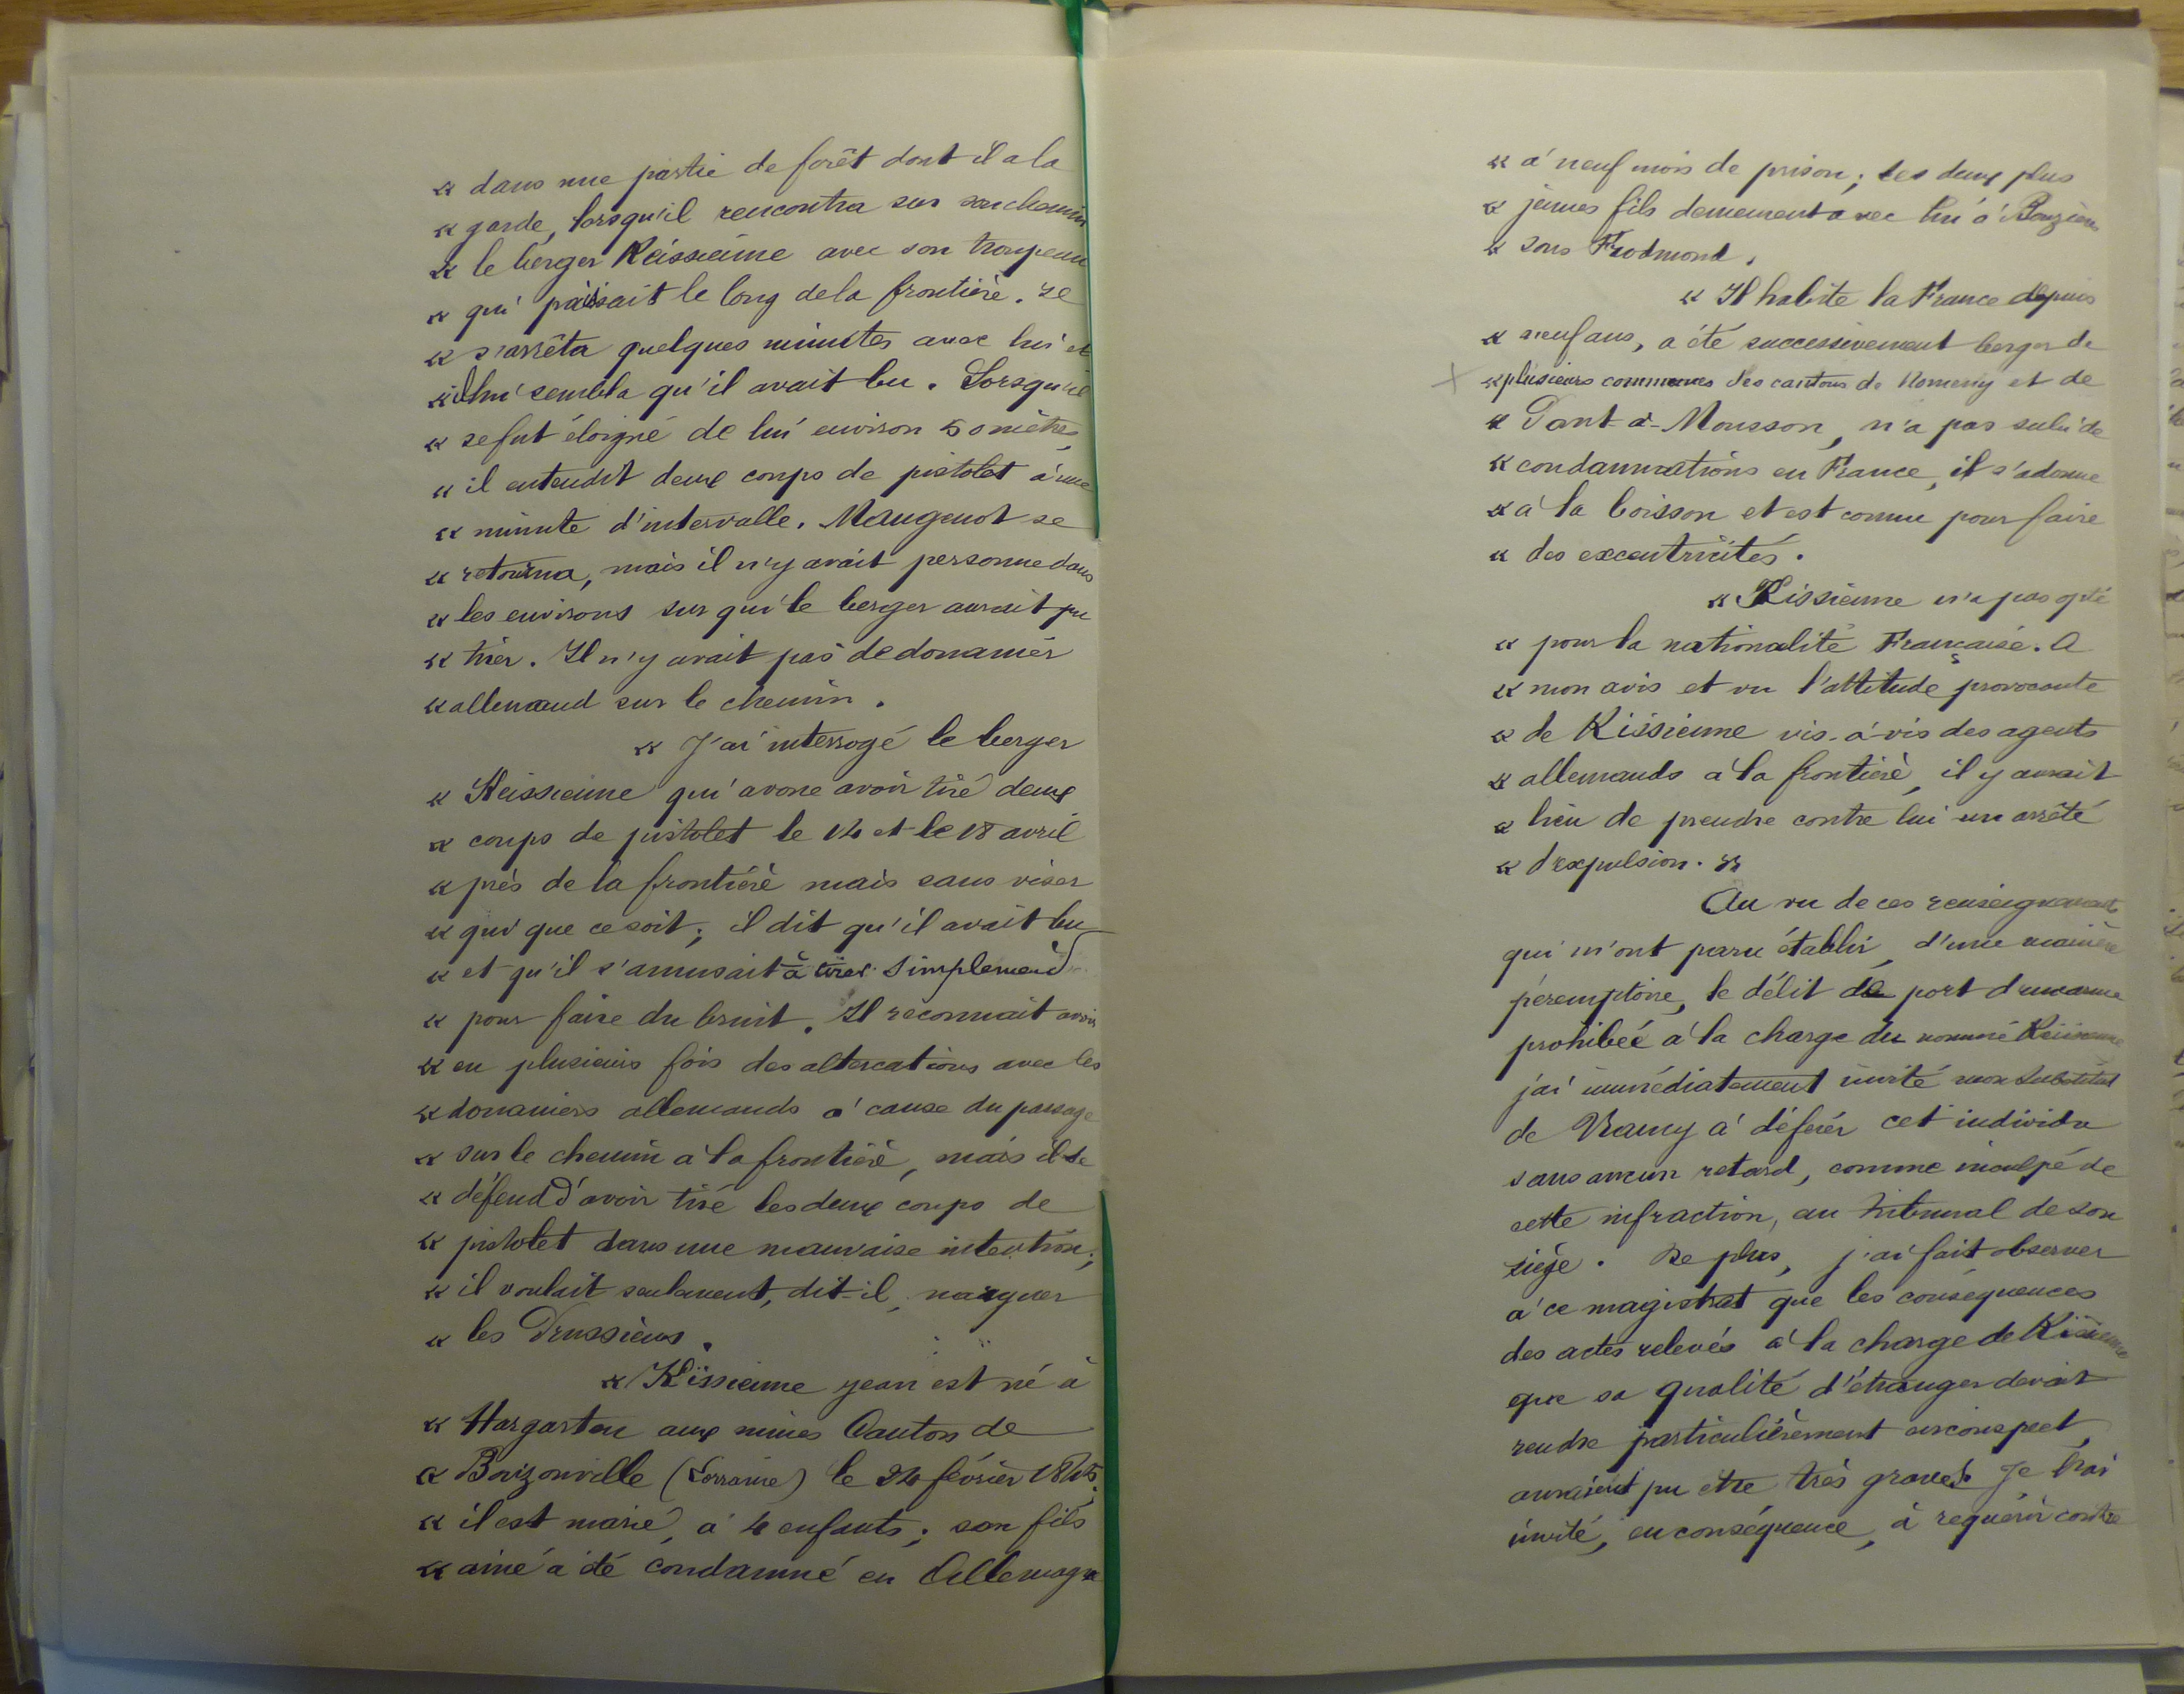 « dans une partie de forêt dont il a la
« garde, lorsqu'il rencontra sur son chemin
« le berger Keissieime avec son troupeau
« qui paissait le long de la frontière. Il
« s'arrêta quelques minutes avec lui et
« il lui sembla qu'il avait bu. Lorsqu'il
« se fut éloigné de lui environ 50 mètres,
« il entendit deux coups de pistolet à une
« minute d'intervalle. Maugenot se
« retourna, mais il n'y avait personne dans
« les environs sur qui le berger aurait pu
« tirer. Il n'y avait pas de douanier
« allemand sur le chemin.
« J'ai interrogé le berger
« Keissieime qui avoue avoir tiré deux
« coups de pistolet le 14 et le 18 avril
« près de la frontière mais sans viser
« qui que ce soit; il dit qu'il avait bu
« et qu'il s'amusait à tirer simplement
« pour faire du bruit. Il reconnait avoir
« eu plusieurs fois des altercations avec les
« douaniers allemands à cause du passage
« sur le chemin à la frontière, mais il se
« défend d'avoir tiré les deux coups de
« pistolet dans une mauvaise intention;
« il voulait seulement, dit-il, narguer
« les Prussiens.
« Kissieime Jean est né à
« Hargarten aux mines Canton de
« Bouzonville (Lorraine) le 24 février 1845,
« il est marié, a 4 enfants; son fils
« ainé a été condamné en Allemagne
« à neuf mois de prison; les deux plus
« jeunes fils demeurent avec lui à Bouzières
« sous Froidmond.
« Il habite la France depuis
« neuf ans, a été successivement berger de
« plusieurs communes des cantons de Nomeny et de
« Pont-à-Mousson, n'a pas subi de
« condamnations en France, il s'adonne
« à la boisson et est connu pour faire
« des excentricités.
« Kissieime n'a pas opté
« pour la nationalité Française. A
« mon avis et vu l'attitude provocante
« de Kissieime vis-à-vis des agents
« allemands à la frontière, il y aurait
« lieu de prendre contre lui un arrêté
« d'expulsion. »
Au vu de ces renseignements
qui m'ont paru établir, d'une manière
péremptoire, le délit de port d'une arme
prohibée à la charge du nommé Keissieime
j'ai immédiatement invité mon Substitut
de Nancy à déférer cet individu
sans aucun retard, comme inculpé de
cette infraction, au tribunal de son
siège. De plus, j'ai fait observer
à ce magistrat que les conséquences
des actes relevés à la charge de Kissieime
que sa qualité d'étranger devait
rendre particulièrement circonspect,
auraient pu etre très graves. Je l'ai
invité, en conséquence, à requérir contre